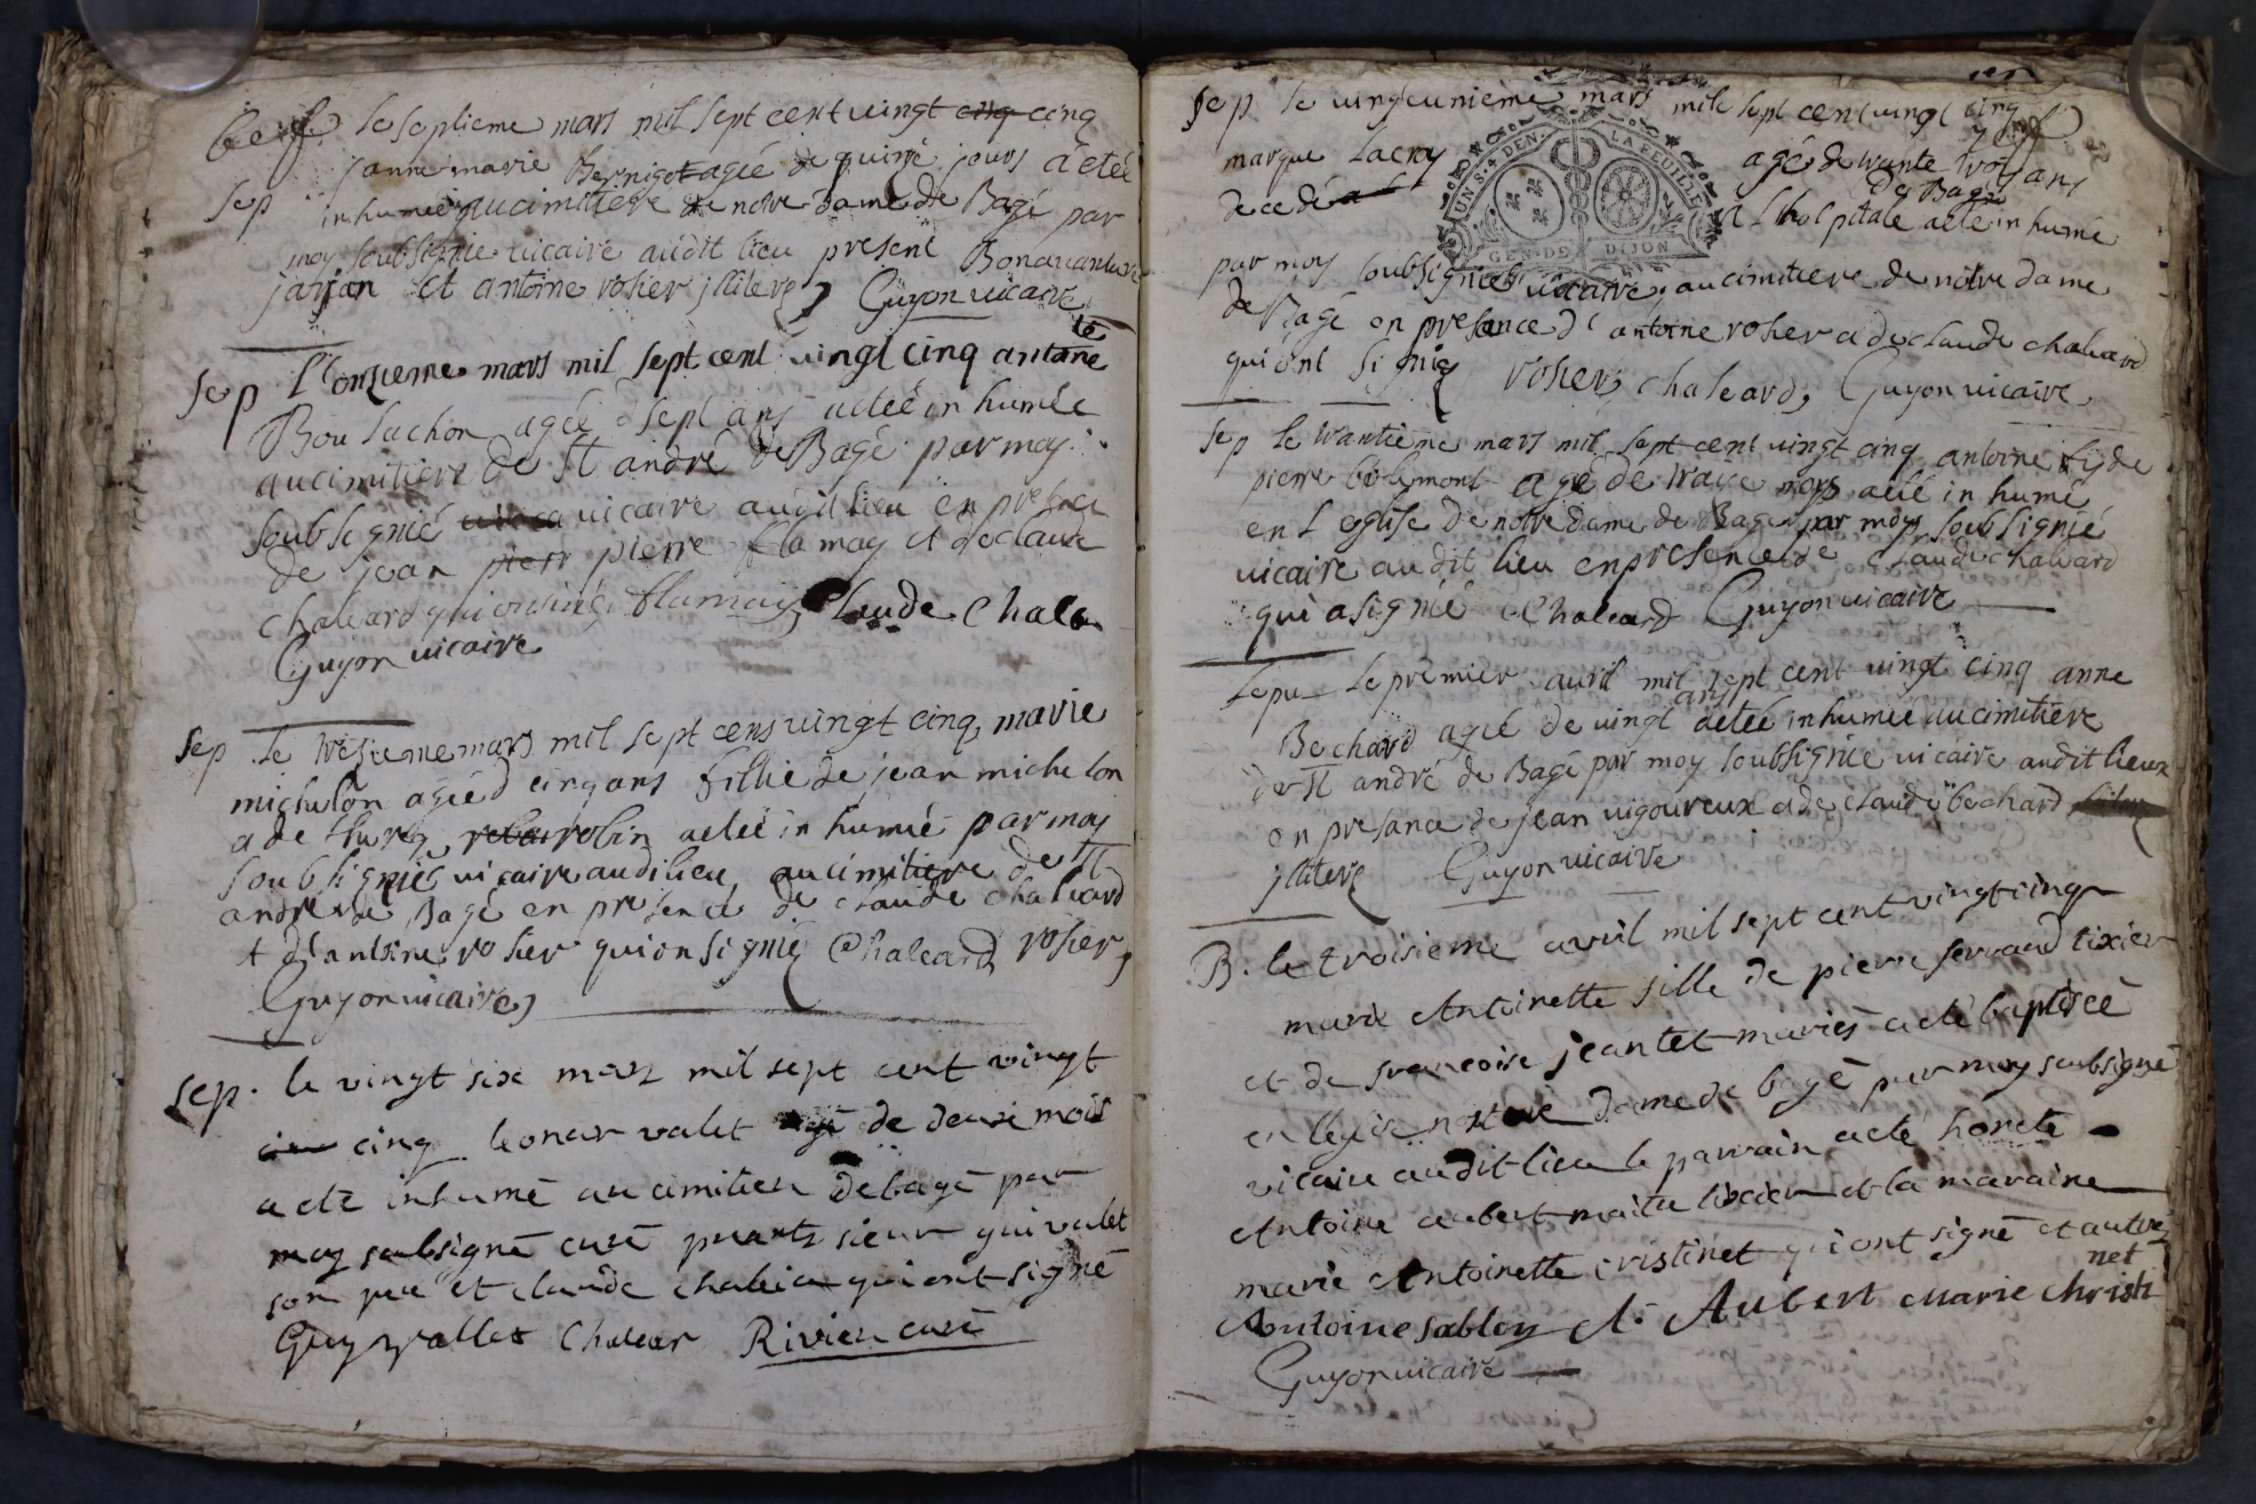 le septieme mars mil sept cent vingt cinq cinq
janne marie Bernigot agée de quinze jours a eteé
sep inhumeé au cimitiere de notre dame de Bagé par
moy soubsignie vicaire audit lieu present Bonavanture
janjan et antoine rosier jllitere Guyon vicaire
sep l'onzieme mars mil sept cent vingt cinq antoine
te
Boulachon agée d sept ans a eteé inhumée
au cimitiere de st andré de Bagé par moy
soubsignié vicaire audit lieu en presence
de jean pierr pierre flamay et de claude
chaleard qui ont signé flamay, Claude Chalea
Guyon vicaire
sep le tresieme mars mil sept cens vingt cinq, marie
michelon ageé d cinq ans fillie de jean michelon
a de robin a eteé inhumié par moy
soubsignié vicaire audi lieu, au cimitiere de st
andré de Bagé en presence de claude chaleard
t d'antoine rosier qui on signié Chaleard rosier,
Guyon vicaire,
sep. le vingt six mars mil sept cent vingt
cinq leonar valet agé de deux mois
a ete inhumé au cimitiere de bagé par
moy soubsigné curé presents sieur gui valet
son pere et claude chalear qui ont signé
Guy vallet Chalear Rivier curé
sep le vingteunieme mars mile sept cent vingt cinq
UN S. 4 DEN. LA FEUILLE
GEN. DE DIJON
marque Lacroy agé de trante troy ans
decedé a l'hospitale a eté inhumé
de Bagé
par moy soubsignieé vicaire, au cimitiere de notre dame
de Bagé en presence d' antoine rosier a de claude chaleard
qui ont signié rosier, chaleard, Guyon vicaire
sep le trantieme mars mil sept cent vingt cinq antoine fis de
pierre agé de traize moys a eté inhumé
en l eglise de notre dame de Bagé par moy soubsignié
vicaire audit lieu en presence de claude chaleard
qui a signié Chaleard Guyon vicaire
sepu le premier avril mil sept cent vingt cinq anne
Bechard ageé de vingt ans a eteé inhumée au cimitiere
de st andré de Bagé par moy soubsignié vicaire audit lieux
en presance de jean vigoureux a de claude bechard
jllitere Guyon vicaire
B. le troisieme avril mil sept cent vingt cinq
marie Antoinette fille de pierre ferraud tixier
et de francoise jeantet mariés a eté baptiseé
en leglise nostre dame de bagé par moy soubsigné
vicaire audit lieu le parrain a eté honete
Antoine aubert maitre tixier et la maraine
marie Antoinette cristinet qui ont signé et autre
Antoine sabloy A. Aubert Marie Christi
net
Guyon vicaire